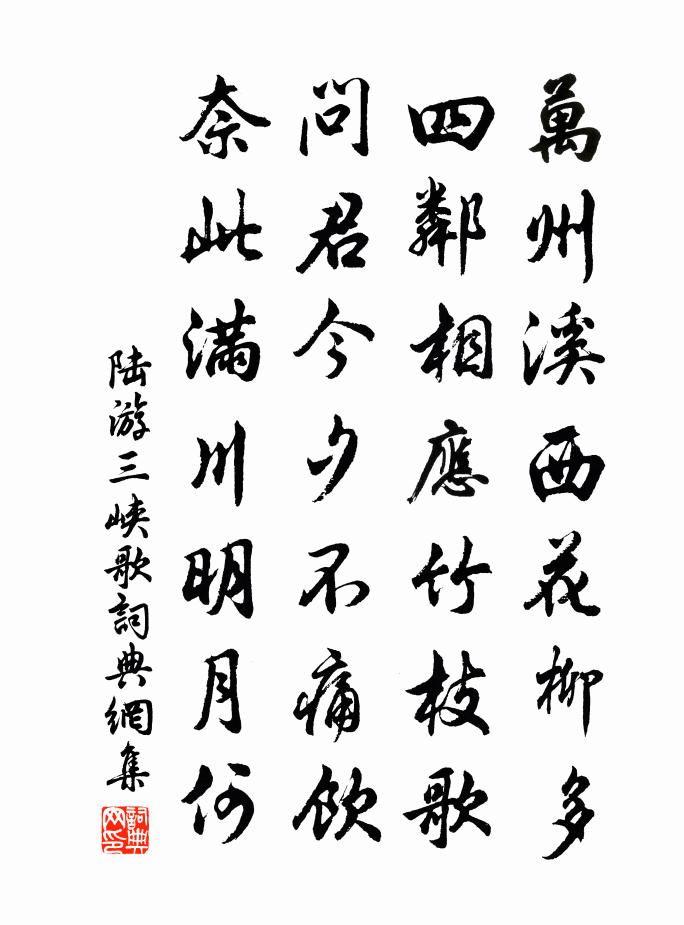 萬州溪西花柳多
四鄰相應竹枝歌
問君今夕不痛飲
奈此滿川明月何
陆游三峽歌詞典網集
詞典
网印